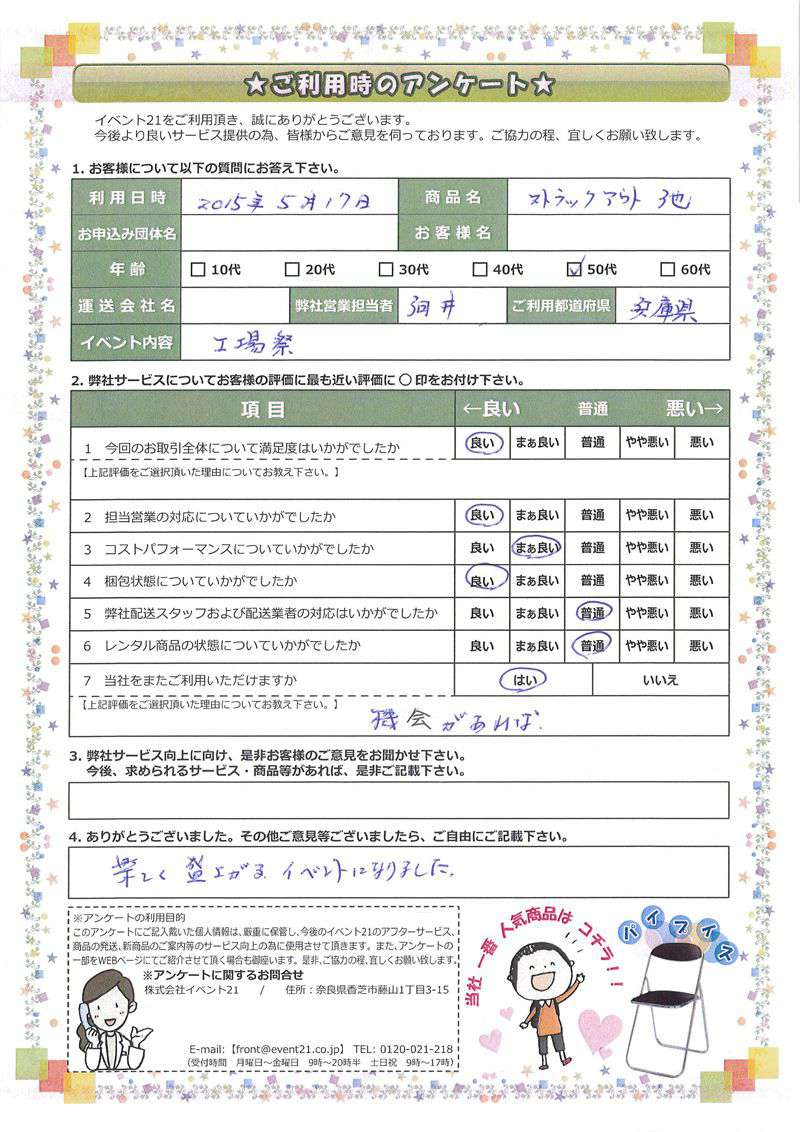 ★ご利用時のアンケート★
イベント21をご利用頂き、誠にありがとうございます。
今後より良いサービス提供の為、皆様からご意見を伺っております。ご協力の程、宜しくお願い致します。
1. お客様について以下の質問にお答え下さい。
利用日時 2015年5月17日 商品名 ストラックアウト 他
お申込み団体名 お客様名
年齢 □10代 □20代 □30代 □40代 ☑50代 □60代
運送会社名 弊社営業担当者 河井 ご利用都道府県 兵庫県
イベント内容 工場祭
2. 弊社サービスについてお客様の評価に最も近い評価に〇印をお付け下さい。
項目 ←良い 普通 悪い→
1 今回のお取引全体について満足度はいかがでしたか 良い まぁ良い 普通 やや悪い 悪い
【上記評価をご選択頂いた理由についてお教え下さい。】
2 担当営業の対応についていかがでしたか 良い まぁ良い 普通 やや悪い 悪い
3 コストパフォーマンスについていかがでしたか 良い まぁ良い 普通 やや悪い 悪い
4 梱包状態についていかがでしたか 良い まぁ良い 普通 やや悪い 悪い
5 弊社配送スタッフおよび配送業者の対応はいかがでしたか 良い まぁ良い 普通 やや悪い 悪い
6 レンタル商品の状態についていかがでしたか 良い まぁ良い 普通 やや悪い 悪い
7 当社をまたご利用いただけますか はい いいえ
【上記評価をご選択頂いた理由についてお教え下さい。】
機会があれば.
3. 弊社サービス向上に向け、是非お客様のご意見をお聞かせ下さい。
今後、求められるサービス・商品等があれば、是非ご記載下さい。
4. ありがとうございました。その他ご意見等ございましたら、ご自由にご記載下さい。
楽しく盛上がるイベントになりました.
※アンケートの利用目的
このアンケートにご記入戴いた個人情報は、厳重に保管し、今後のイベント21のアフターサービス、
商品の発送、新商品のご案内等のサービス向上の為に使用させて頂きます。また、アンケートの
一部をWEBページにてご紹介させて頂く場合も御座います。是非、ご協力の程、宜しくお願い致します。
※アンケートに関するお問合せ
株式会社イベント21 / 住所：奈良県香芝市藤山1丁目3-15
E-mail:【front@event21.co.jp】 TEL: 0120-021-218
（受付時間 月曜日〜金曜日 9時〜20時半 土日祝 9時〜17時）
当社一番人気商品はコチラ！！
パイプイス